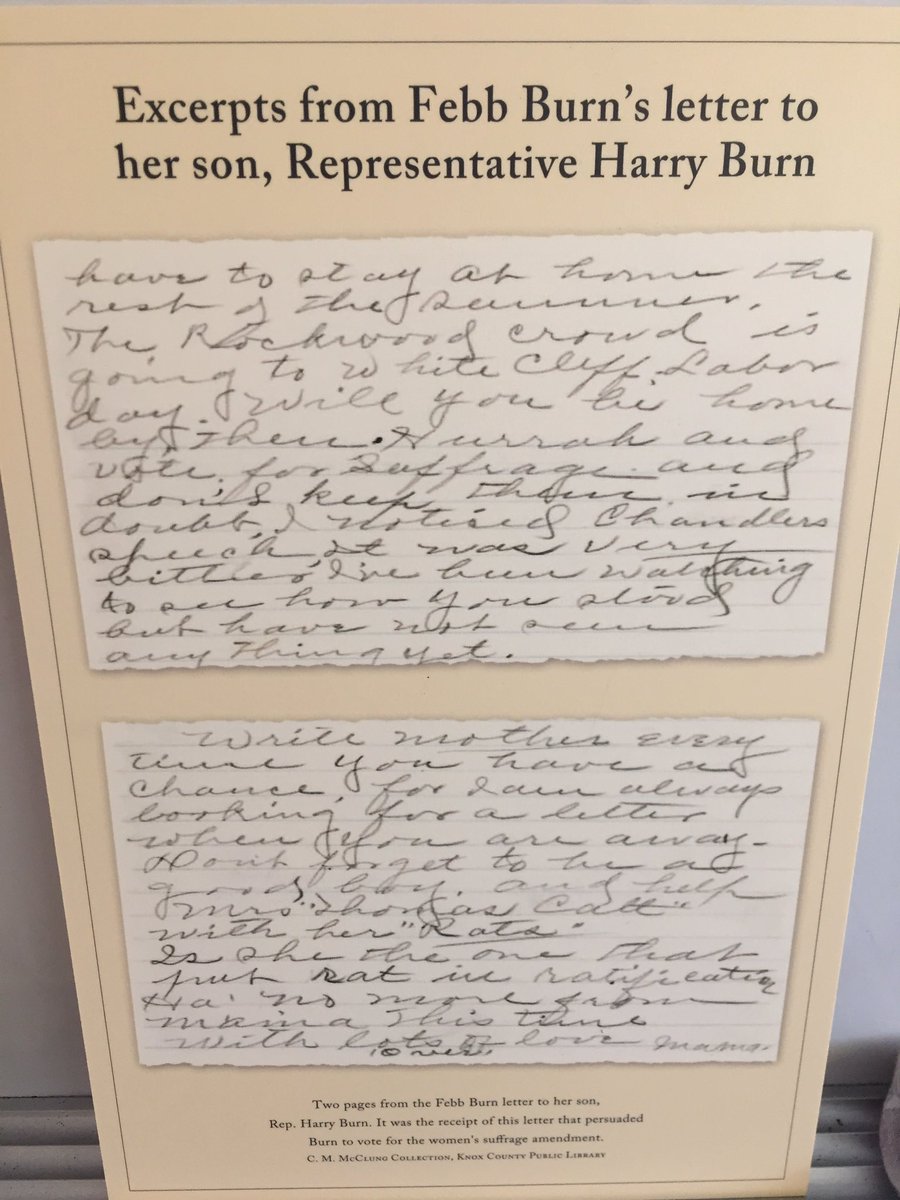 Excerpts from Febb Burn's letter to
her son, Representative Harry Burn
have to stay at home the
rest of the summer.
The Rockwood crowd is
going to White Cliff Labor
day. Will you be home
by then. Hurrah and
vote for Suffrage and
don't keep them in
doubt, I noticed Chandlers
speech, it was very
bitter, I've been watching
to see how you stood
but have not seen
any thing yet.
Write mother every
time you have a
chance, for I am always
looking for a letter
when you are away-
Don't forget to be a
good boy. and help
Mrs "Thomas Catt"
with her "Rats."
Is she the one that
put rat in ratification
Ha! no more from
mama this time
With lots of love mama.
over.
Two pages from the Febb Burn letter to her son,
Rep. Harry Burn. It was the receipt of this letter that persuaded
Burn to vote for the women's suffrage amendment.
C. M. McClung Collection, Knox County Public Library